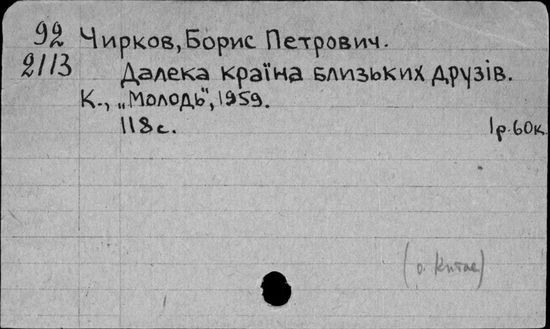 92 Чирков, Борис Петрович.
2113 Далека країна близьких друзів.
К., „Молодь", 1959.
118с. 1р.60к.
(о Китае)